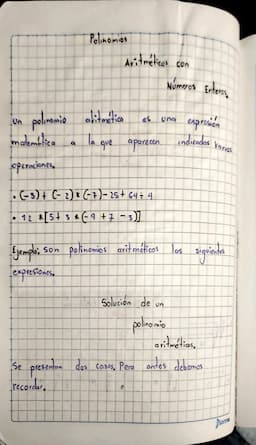 Polinomios
Aritméticos con
Números Enteros.
Un polinomio aritmético es una expresión
matemática a la que aparecen indicadas varias
operaciones.
• (-3) + (-2) * (-7) - 25 + 64 ÷ 4
• 12 * [5 + 3 * (-9 + 7 - 3)]
Ejemplo: son polinomios aritméticos las siguientes
expresiones.
Solución de un
polinomio
aritmético.
Se presentan dos casos. Pero antes debemos
recordar.